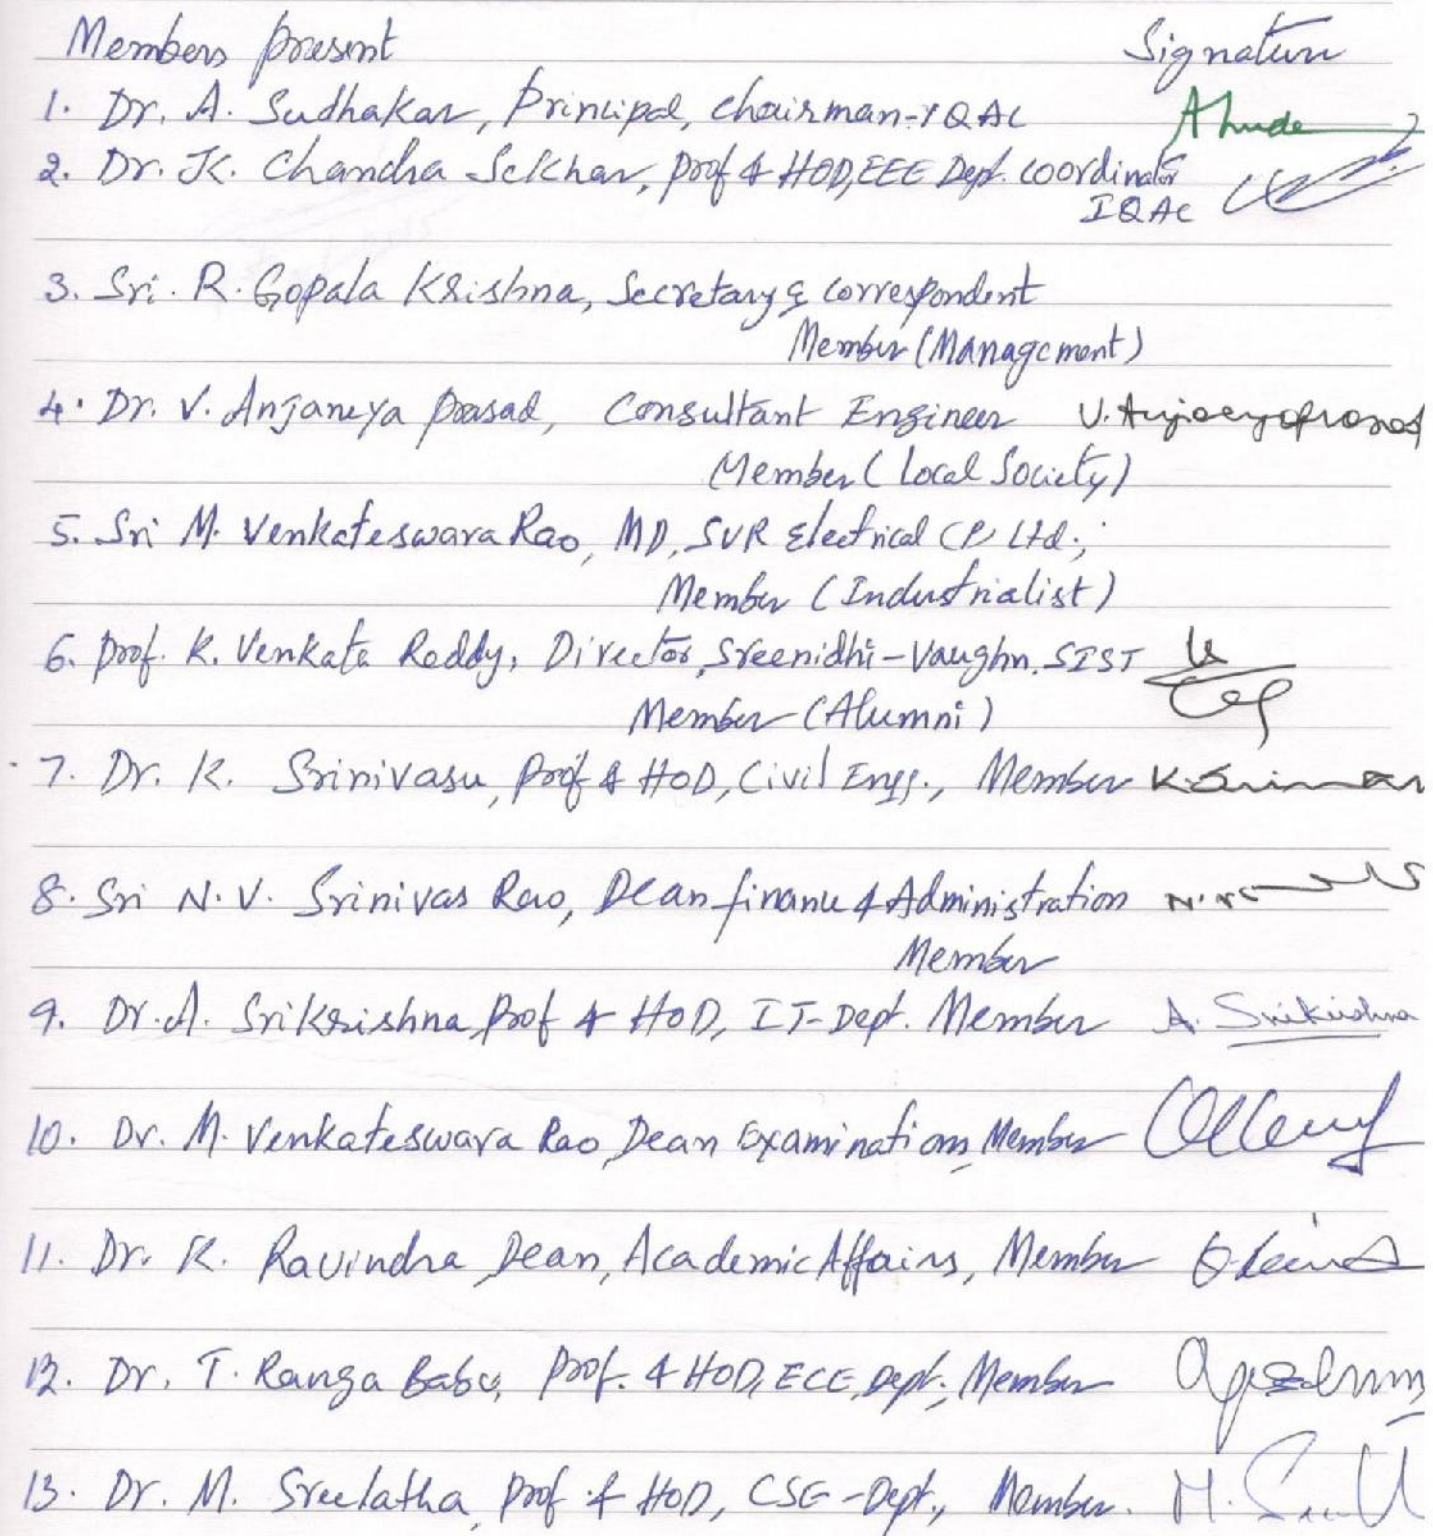 Members present Signature
1. Dr. A. Sudhakar, Principal, Chairman-IQAC
2. Dr. K. Chandra Sekhar, Prof & HOD, EEE Dept. coordinator
IQAC
3. Sri. R. Gopala Krishna, Secretary & correspondent
Member (Management)
4. Dr. V. Anjaneya Prasad, Consultant Engineer V. Anjaneyaprasad
Member (Local Society)
5. Sri M. Venkateswara Rao, MD, SVR Electrical (P) Ltd.;
Member (Industrialist)
6. Prof. K. Venkata Reddy, Director, Sreenidhi-Vaughn. SIST
Member (Alumni)
7. Dr. K. Srinivasu, Prof & HOD, Civil Engg., Member
8. Sri N. V. Srinivas Rao, Dean finance & Administration
Member
9. Dr. A. Srikrishna, Prof & HOD, IT-Dept. Member A. Srikrishna
10. Dr. M. Venkateswara Rao, Dean Examinations, Member
11. Dr. K. Ravindra, Dean, Academic Affairs, Member
12. Dr. T. Ranga Babu, Prof. & HOD, ECE, Dept., Member
13. Dr. M. Sreelatha, Prof & HOD, CSE-Dept., Member.